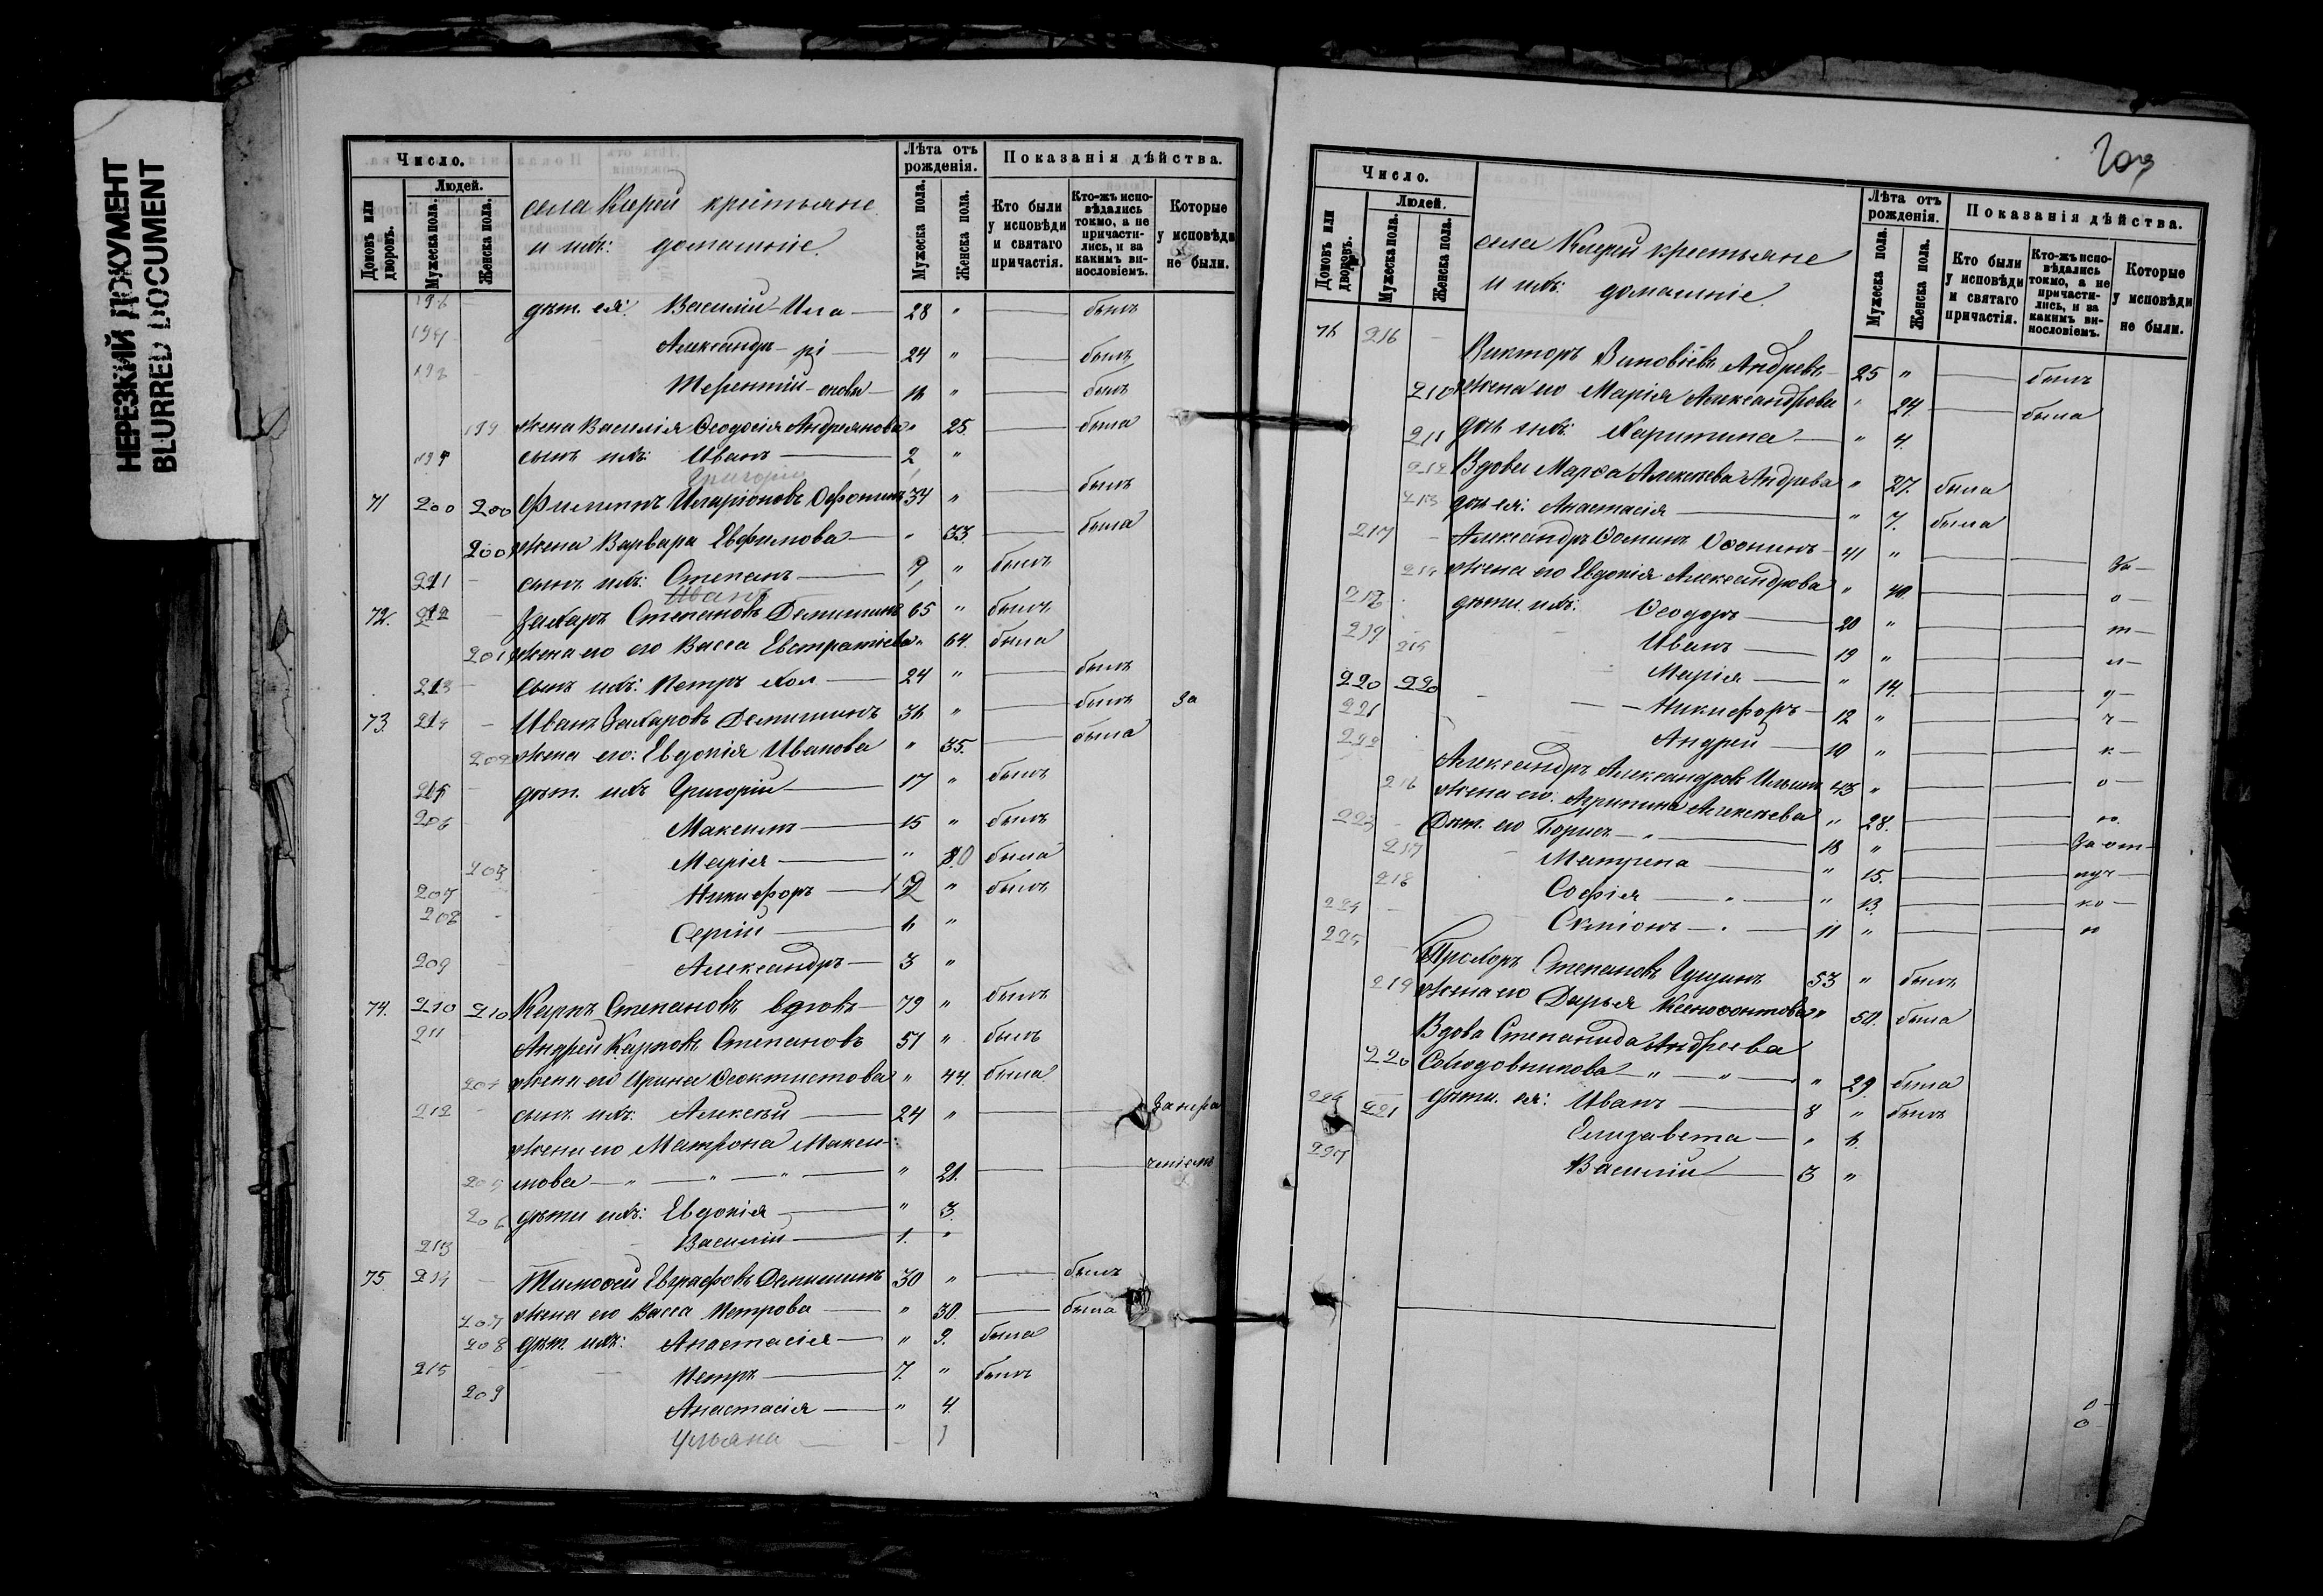 НЕРЕЗКИЙ ДОКУМЕНТ
BLURRED DOCUMENT
Число.
Людей.
Домовъ или дворовъ.
Мужеска пола.
Женска пола.
села крестьяне
и ихъ: домашніе.
Лѣта отъ рожденія.
Мужеска пола.
Женска пола.
Показанія дѣйства.
Кто были у исповѣди и святаго причастія.
Кто-жъ исповѣдались токмо, а не причастились, и за какимъ винословіемъ.
Которые у исповѣди не были.
196 дѣт. ея: Василій Ила 28 " былъ
197 Александръ рі 24 " былъ
198 Терентій оновы " былъ
199 жена Василія Ѳеодосія Андреянова " 25. была
199 сынъ ихъ: Иванъ 2 "
Григорій
71 200 200 Филиппъ Иларіоновъ 34 " былъ
200 жена Варвара Евфимова " 33. была
сынъ ихъ: Степанъ 9 " былъ
Иванъ
72. Захаръ Степановъ Демишинъ 65 " былъ
201 жена его его Васса Евстратіева " 64. была
сынъ ихъ: Петръ Хол 24 " былъ
73. Иванъ Захаровъ Демишинъ " былъ За
202 жена его: Евдокія Иванова " 35. была
дѣт. ихъ Григорій 17 " былъ
206 Максимъ 15 " былъ
203 Марія " была
207 Никифоръ " былъ
208 Сергій "
209 Александръ 3 "
74. 210 210 Карпъ Степановъ вдовъ 79 " былъ
211 Андрей Карповъ Степановъ 51 " былъ
204 жена его Ирина Ѳеоктистова " 44. была
212 сынъ ихъ: Алексѣй 24 "
жена его Матрона Макси-
205 мова " " " " 21.
206 дѣти ихъ: Евдокія " 3.
213 Василій 1. "
75 214 Тимоѳей Евграфовъ Демишинъ 30 " былъ
207 жена его Васса Петрова " 30. была
208 дѣт. ихъ: Анастасія " 9. была
215 Петръ 7. " былъ
209 Анастасія " 4.
Ульяна 1
203
Число.
Людей.
Домовъ или дворовъ.
Мужеска пола.
Женска пола.
села крестьяне
и ихъ: домашніе.
Лѣта отъ рожденія.
Мужеска пола.
Женска пола.
Показанія дѣйства.
Кто были у исповѣди и святаго причастія.
Кто-жъ исповѣдались токмо, а не причастились, и за какимъ винословіемъ.
Которые у исповѣди не были.
216 Викторъ Андреевъ 25 " былъ
210 жена его Марія Александрова " 24. была
211 дочь ихъ: Харитина " 4.
212 Вдова Марѳа Алексѣева Андреева " 27. была
213 дочь ея: Анастасія " 7. была
217 Александръ Ѳоминъ 41 " За
214 жена его Евдокія Александрова " 40. о
218 дѣти ихъ: Ѳеодоръ 20 " т
219 Иванъ 19 " л
215 Марія " 14. у
220 220 Никифоръ 12 " ч
221 Андрей 10 " к
222 Александръ Александровъ Ильинъ 43 " о
216 жена его: Агрипина Алексѣева " 28.
223 Дѣт. его Борисъ 18 " За от
217 Матрена " 15. луч
218 София " 13. ко
224 11 "
225 Прохоръ Степановъ 53 " былъ
219 жена его Дарья Ксенофонтова " 50. была
Вдова Степанида Андреева
220 Солодовникова " " " 29. была
226 221 дѣти. ея: Иванъ 8 " былъ
Елизавета "
227 Василій 3 "